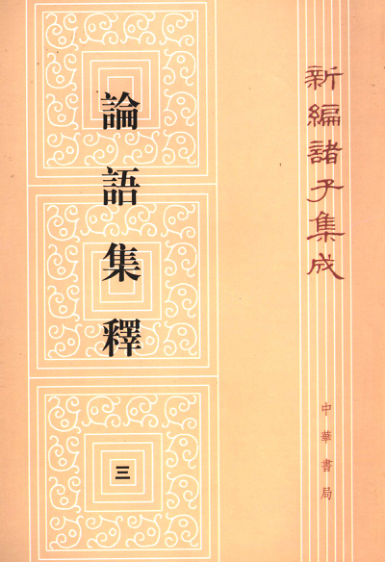 新編諸子集成
中華書局
論語集釋
三